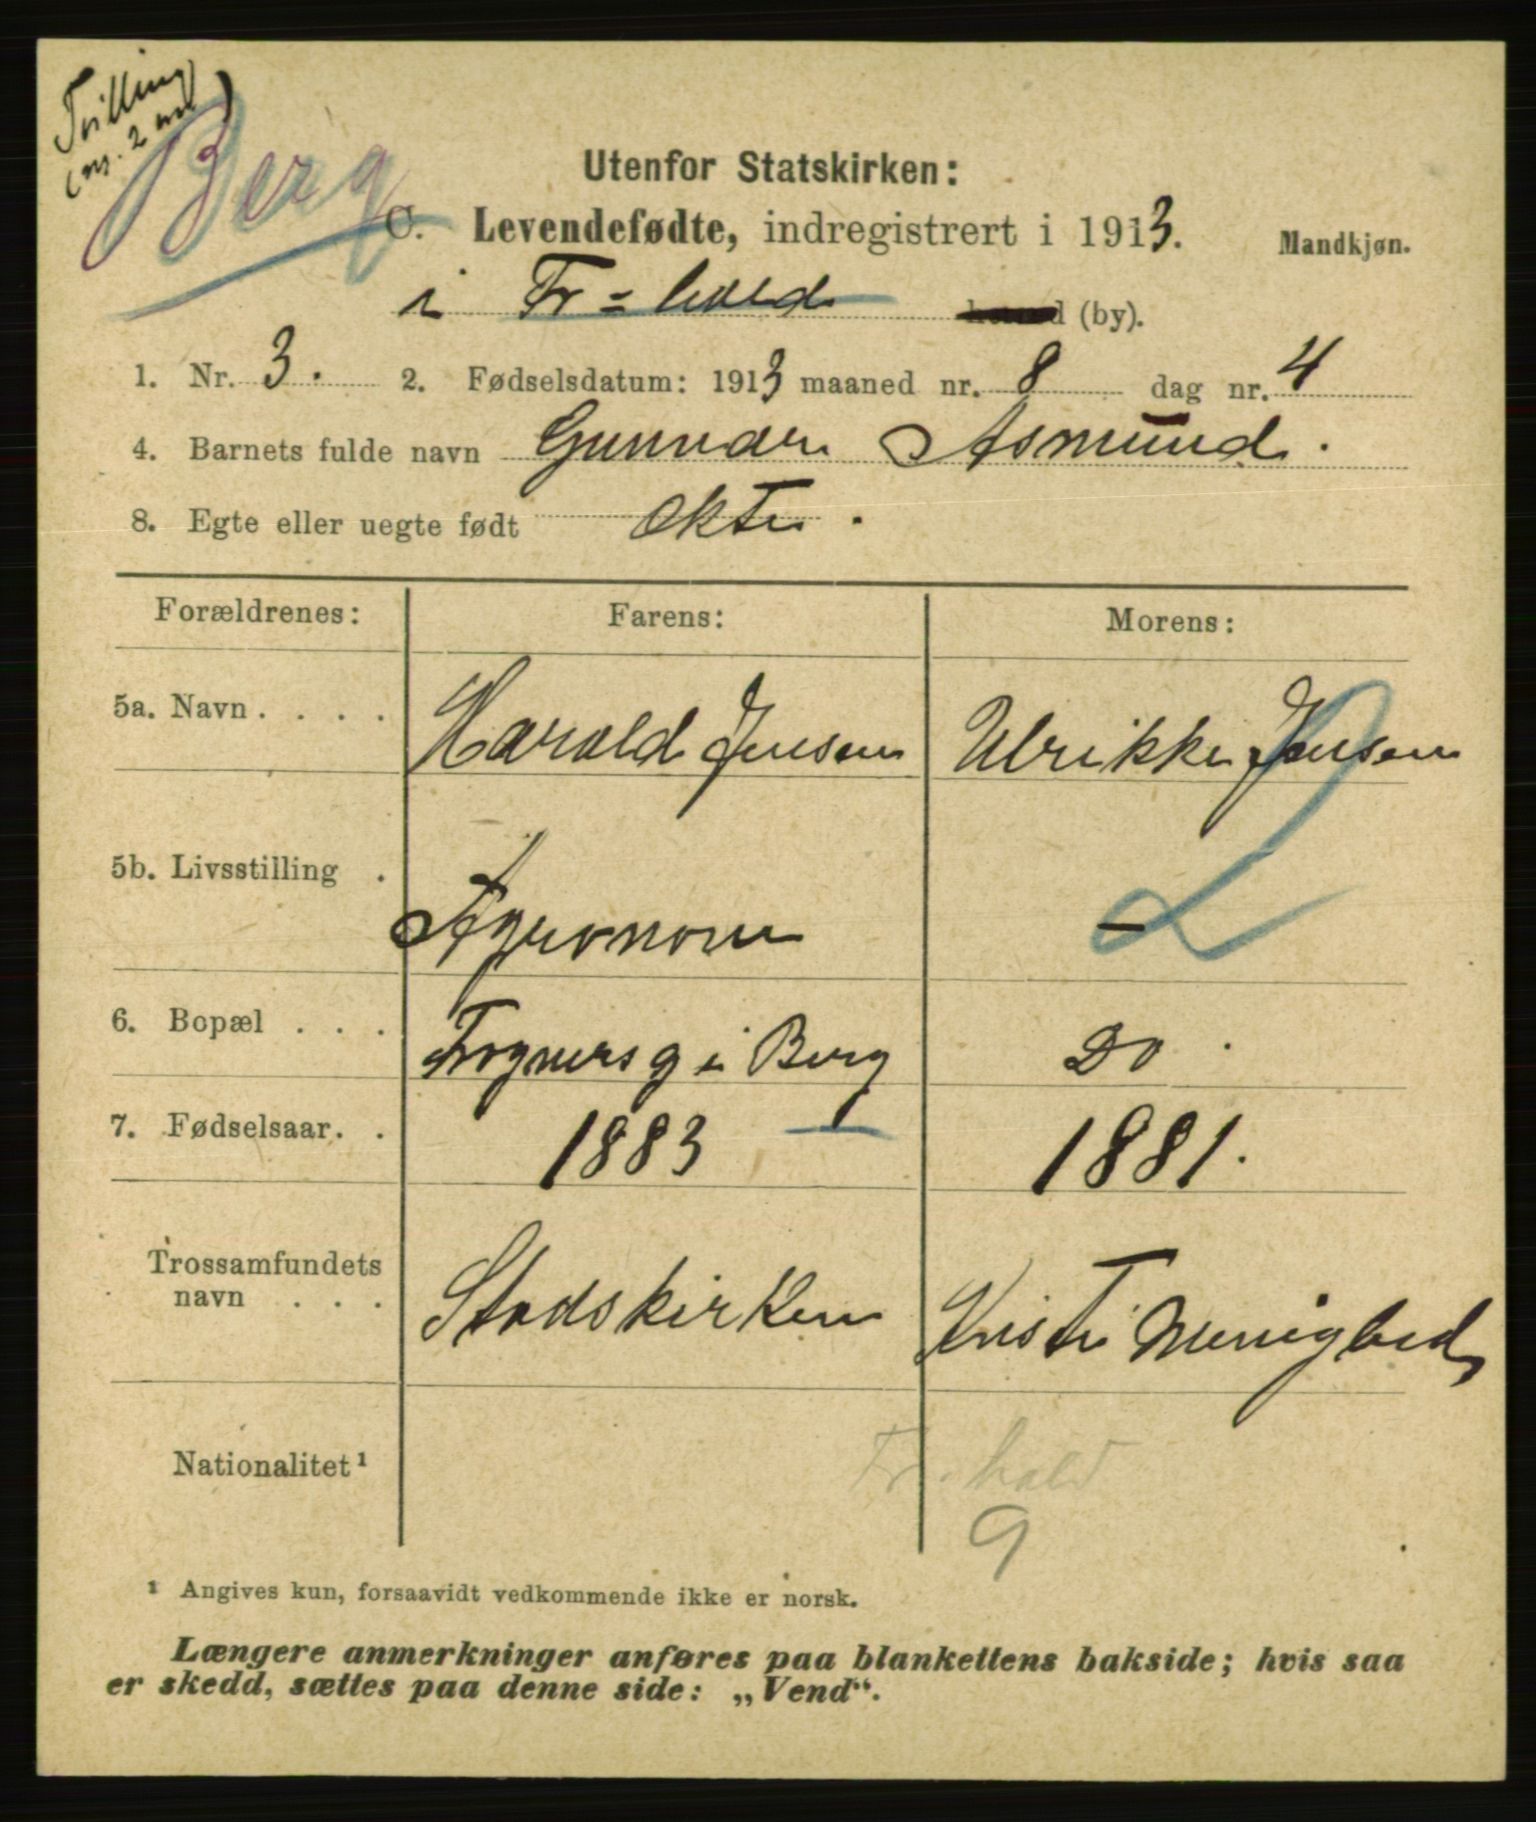 Tvilling
(nr. 2 
Berg
Utenfor Statskirken:
C. Levendefødte, indregistrert i 1913. Mandkjøn.
i Fr=hald (by).
1. Nr. 3. 2. Fødselsdatum: 1913 maaned nr. 8 dag nr. 4
4. Barnets fulde navn Gunnar Asmund.
8. Egte eller uegte født Ekte.
Forældrenes: Farens: Morens:
5a. Navn.... Harald Jensen Ulrikke Jensen
5b. Livsstilling . Agronom –
6. Bopæl ... i Berg Do.
7. Fødselsaar.. 1883 1881.
Trossamfundets
navn ... Stadskirken Kristi Menighed
Nationalitet¹ Fr. hald
9
¹ Angives kun, forsaavidt vedkommende ikke er norsk.
Længere anmerkninger anføres paa blankettens bakside; hvis saa
er skedd, sættes paa denne side: „Vend“.